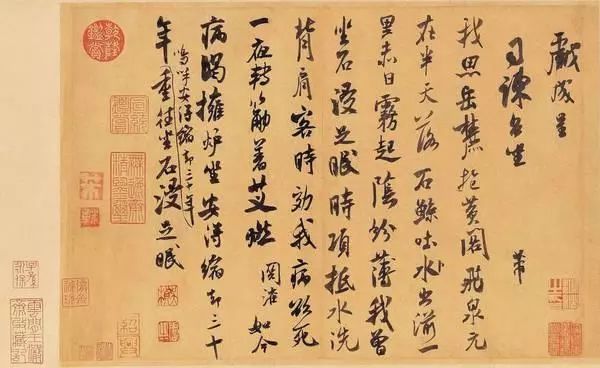 戲成呈
司諫台坐
芾
我思岳麓抱黃閣飛泉元
在半天落石鯨吐水出湔一
里赤日霧起陰紛薄我曾
坐石浸足眠時項抵水洗
背肩客時効我病欲死
一夜轉筋著艾燃 如今
病渴擁爐坐安得縮却三十
嗚呼安得縮却三十年
年重往坐石浸足眠
乾隆鑑賞
紹興